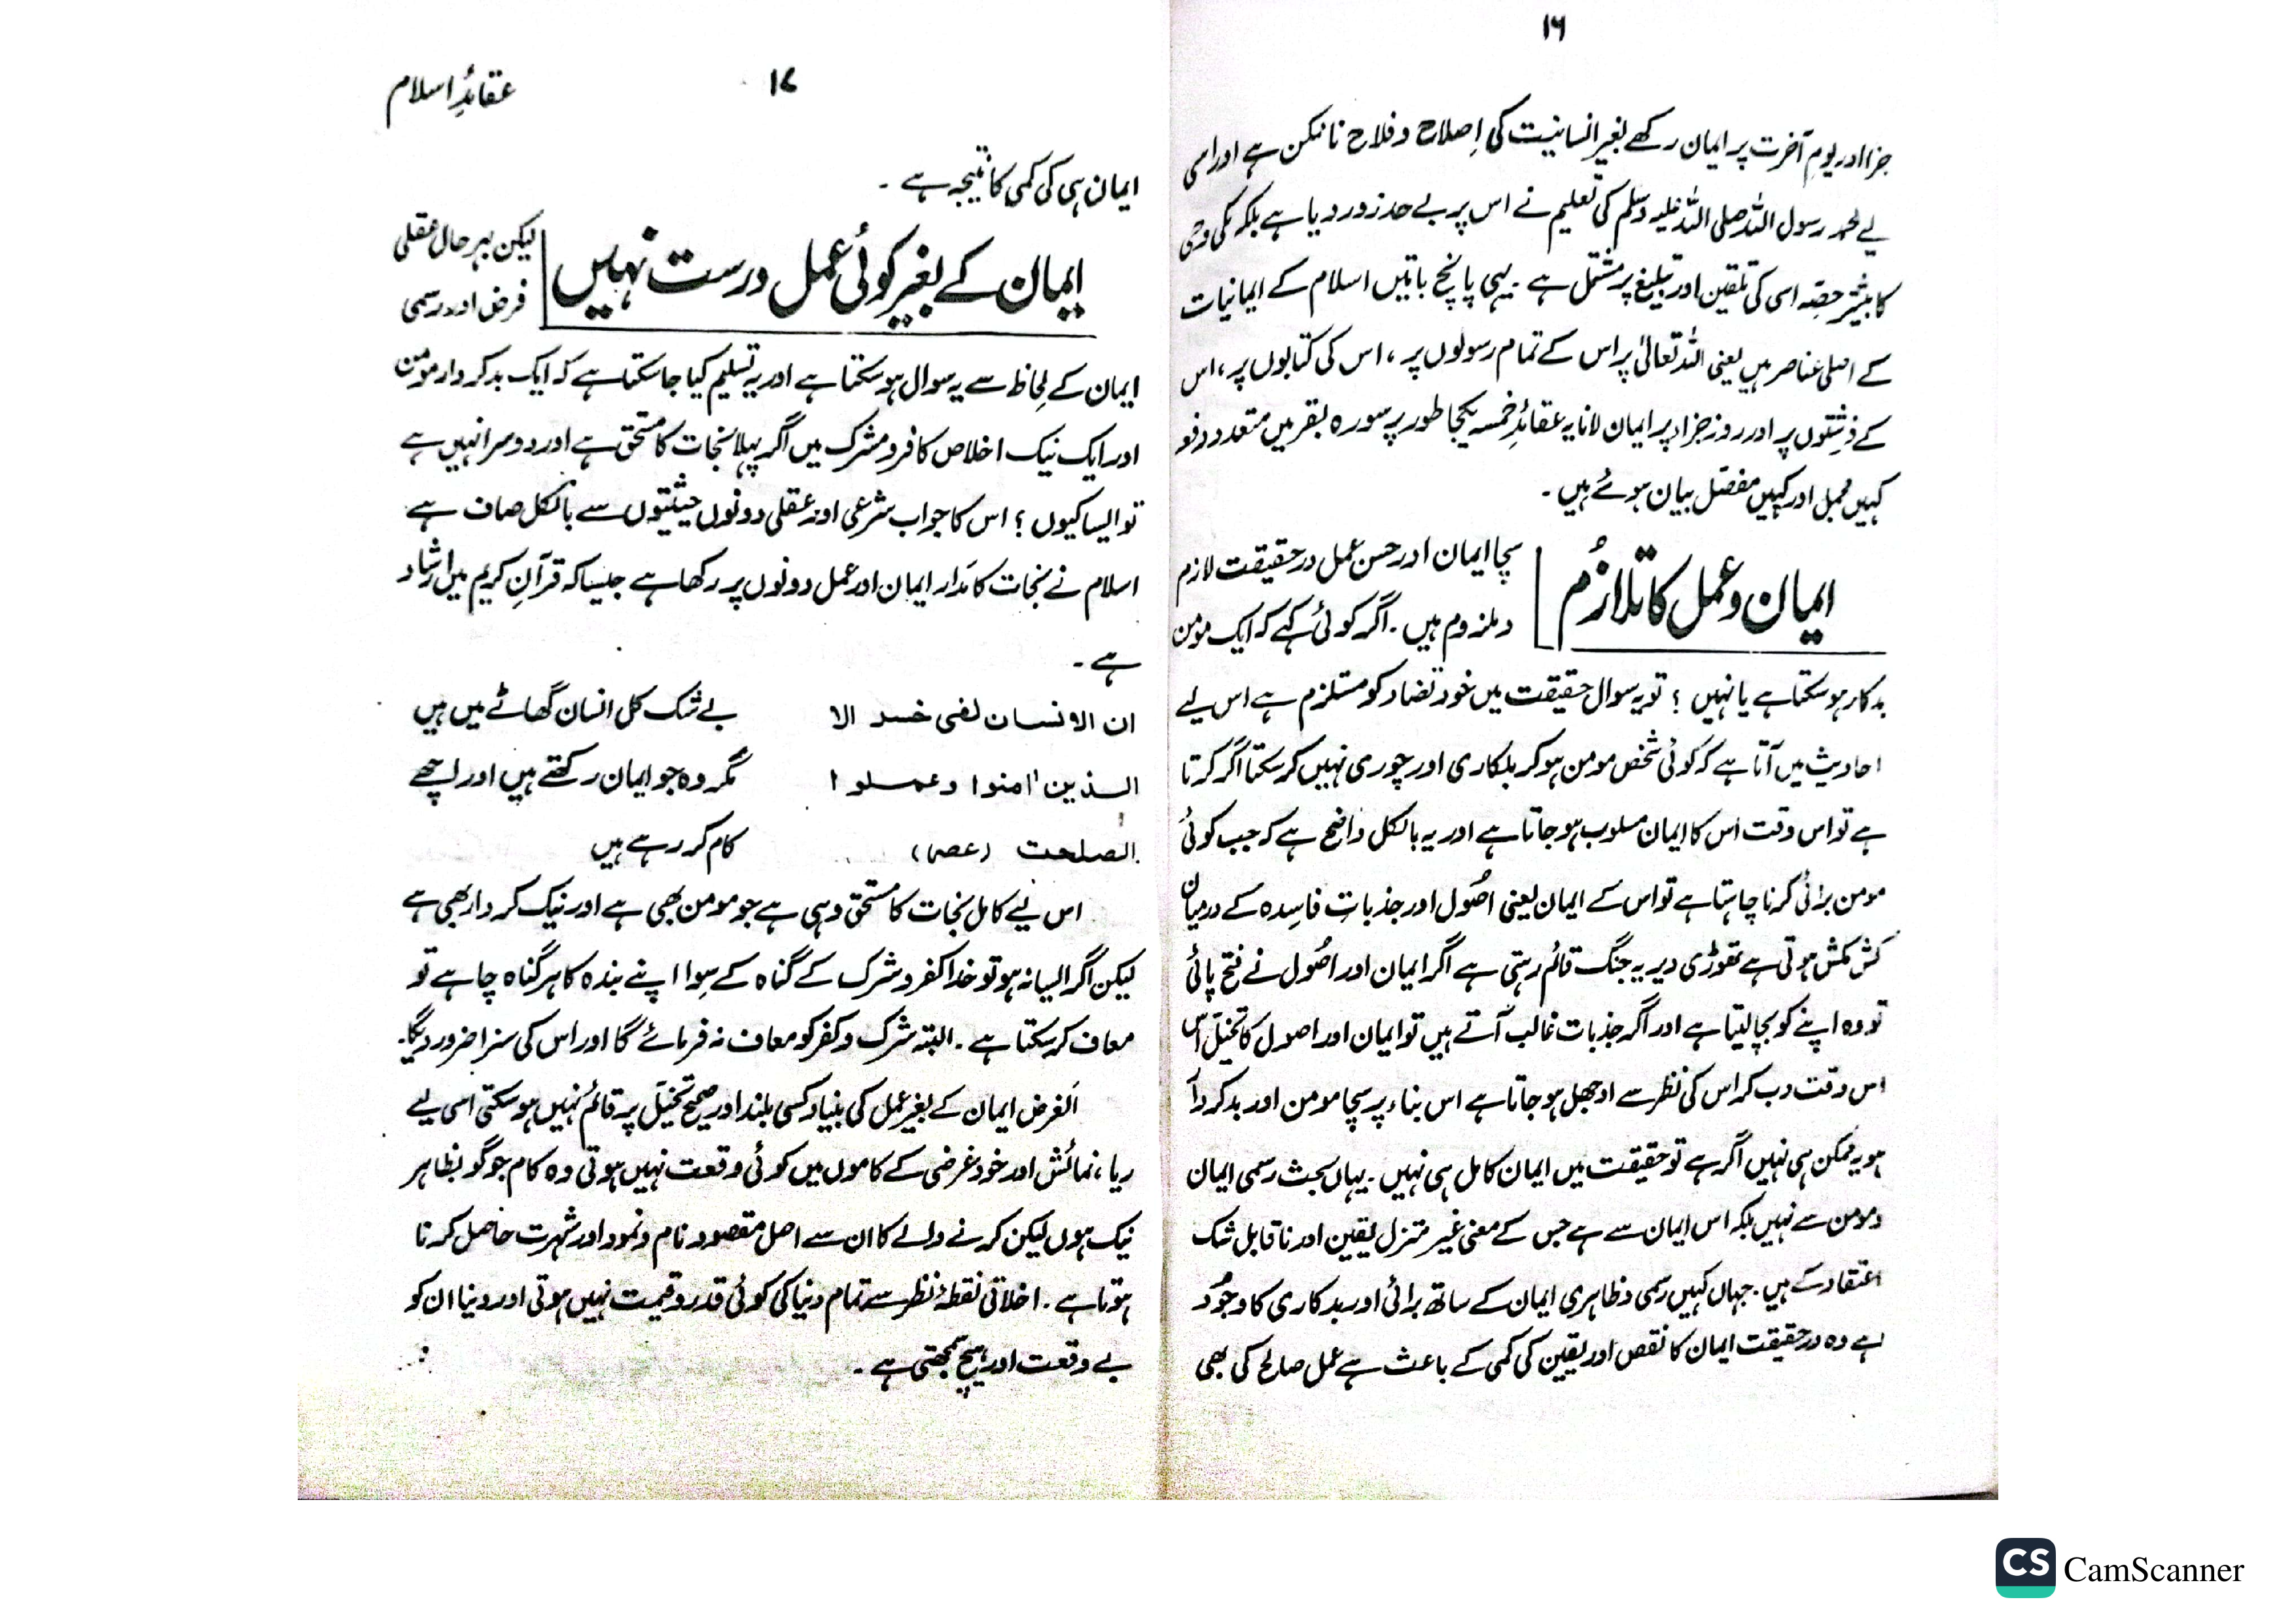 ۱۶
جزا اور یومِ آخرت پر ایمان رکھے بغیر انسانیت کی اِصلاح و فلاح ناممکن ہے اور اسی
لیے محمد رسول اللہ صلی اللہ علیہ وسلم کی تعلیم نے اس پر بے حد زور دیا ہے بلکہ مکی وحی
کا بیشتر حصّہ اسی کی تلقین اور تبلیغ پر مشتمل ہے۔ یہی پانچ باتیں اسلام کے ایمانیات
کے اصلی عناصر ہیں یعنی اللہ تعالیٰ پر اس کے تمام رسولوں پر، اس کی کتابوں پر، اس
کے فرشتوں پر اور روز جزاء پر ایمان لانا یہ عقائدِ خمسہ یکجا طور پر سورہ بقر میں متعدد دفعہ
کہیں مجمل اور کہیں مفصّل بیان ہوئے ہیں۔
ایمان و عمل کا تلازُم
سچا ایمان اور حسن عمل در حقیقت لازم
و ملزوم ہیں۔ اگر کوئی کہے کہ ایک مومن
بدکار ہو سکتا ہے یا نہیں ؟ تو یہ سوال حقیقت میں خود تضاد کو مستلزم ہے اس لیے
احادیث میں آتا ہے کہ کوئی شخص مومن ہو کر بدکاری اور چوری نہیں کر سکتا اگر کرتا
ہے تو اس وقت اس کا ایمان مسلوب ہو جاتا ہے اور یہ بالکل واضح ہے کہ جب کوئی
مومن برائی کرنا چاہتا ہے تو اس کے ایمان یعنی اصُول اور جذباتِ فاسِدہ کے درمیان
کش مکش ہوتی ہے تھوڑی دیر یہ جنگ قائم رہتی ہے اگر ایمان اور اصُول نے فتح پائی
تو وہ اپنے کو بچا لیتا ہے اور اگر جذبات غالب آتے ہیں تو ایمان اور اصول کا تخیّل اس
اس وقت دب کر اس کی نظر سے اوجھل ہو جاتا ہے اس بناء پر سچا مومن اور بدکردار
ہو یہ ممکن ہی نہیں اگر ہے تو حقیقت میں ایمان کامل ہی نہیں۔ یہاں بحث رسمی ایمان
و مومن سے نہیں بلکہ اس ایمان سے ہے جس کے معنی غیر متزل یقین اور ناقابل شک
اعتقاد کے ہیں۔ جہاں کہیں رسمی و ظاہری ایمان کے ساتھ برائی اور بدکاری کا وجُود
ہے وہ در حقیقت ایمان کا نقص اور یقین کی کمی کے باعث ہے عمل صالح کی بھی
۱۷
عقائدِ اسلام
ایمان ہی کی کمی کا نتیجہ ہے۔
ایمان کے بغیر کوئی عمل درست نہیں
لیکن بہر حال عقلی
فرض اور رسمی
ایمان کے لِحاظ سے یہ سوال ہو سکتا ہے اور یہ تسلیم کیا جا سکتا ہے کہ ایک بدکردار مومن
اور ایک نیک اخلاص کافر و مشرک میں اگر پہلا نجات کا مستحق ہے اور دوسرا نہیں ہے
تو ایسا کیوں ؟ اس کا جواب شرعی اور عقلی دونوں حیثیتوں سے بالکل صاف ہے
اسلام نے نجات کا مَدار ایمان اور عمل دونوں پر رکھا ہے جیسا کہ قرآنِ کریم میں ارشاد
ہے۔
ان الانسان لفی خسر الا
بے شک کل انسان گھاٹے میں ہیں
الذین اٰمنوا وعملوا
مگر وہ جو ایمان رکھتے ہیں اور اچھے
الصلحت (عصر)
کام کر رہے ہیں
اس لیے کامل نجات کا مستحق وہی ہے جو مومن بھی ہے اور نیک کردار بھی ہے
لیکن اگر ایسا نہ ہو تو خدا کفر و شرک کے گناہ کے سِوا اپنے بندہ کا ہر گناہ چاہے تو
معاف کر سکتا ہے۔ البتہ شرک و کفر کو معاف نہ فرمائے گا اور اس کی سزا ضرور دیگا۔
اَلغرض ایمان کے بغیر عمل کی بنیاد کسی بلند اور صحیح تخیّل پر قائم نہیں ہو سکتی اسی لیے
ریا، نمائش اور خود غرضی کے کاموں میں کوئی وقعت نہیں ہوتی وہ کام جو گو بظاہر
نیک ہوں لیکن کرنے والے کا ان سے اصل مقصود نام و نمود اور شہرت حاصل کرنا
ہوتا ہے۔ اخلاقی نقطۂ نظر سے تمام دنیا کی کوئی قدر و قیمت نہیں ہوتی اور دنیا ان کو
بے وقعت اور ہیچ سمجھتی ہے۔
CS CamScanner